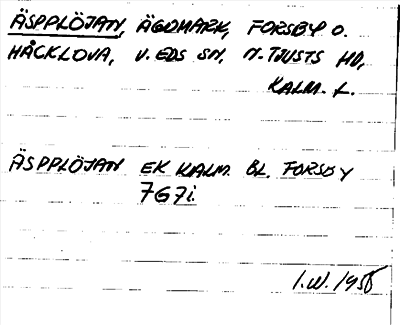 ÄSPPLÖJAN, ÄGOMARK, FORSBY O.
HÅCKLOVA, V. EDS SN, N. TJUSTS HD,
KALM. L.
ÄSPPLÖJAN EK KALM. BL. FORSBY
7G7i.
I.W. 1956